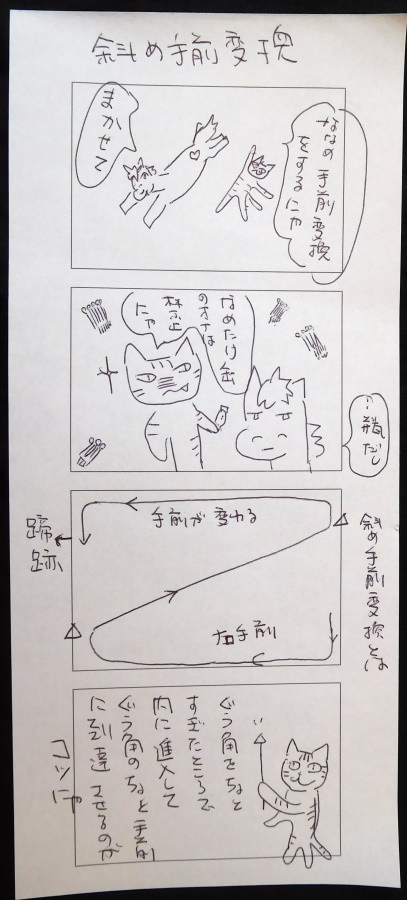 斜め手前変換
ななめ手前変換
をするにゃ
まかせて
なめたけ缶
のオナは
禁止
にゃ
…瓶だし
斜め手前変換とは
手前が変わる
右手前
蹄
跡
ぐう角をちょと
すぎたところで
内に進入して
ぐう角のちょと手前
に到達させるのが
コツにゃ